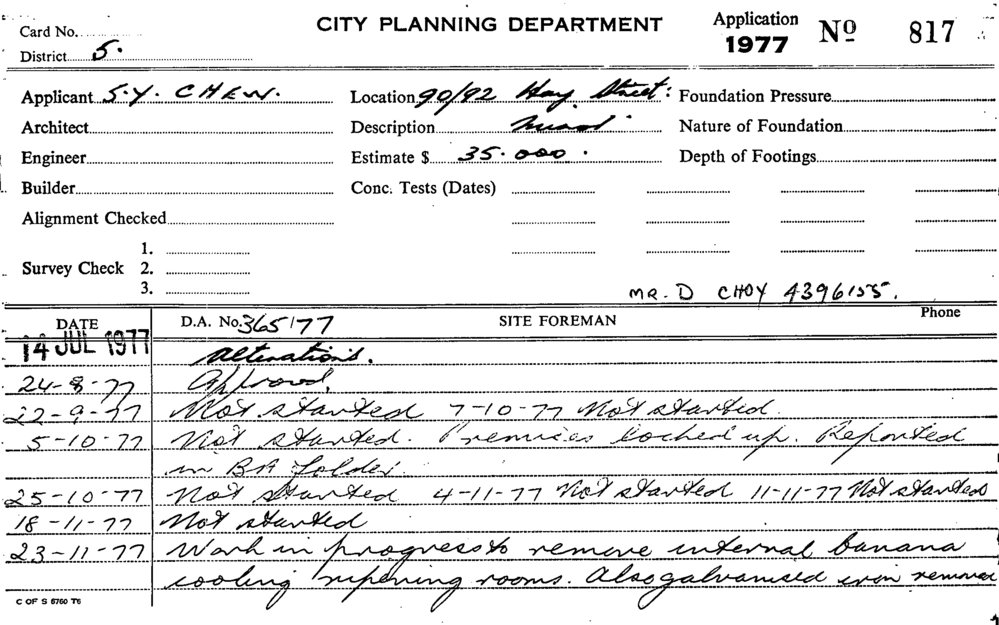 CITY PLANNING DEPARTMENT
Application
1977
Nº 817
Card No.
District 5.
Applicant S.Y. CHEW.
Location 90/92 Hay Street:
Foundation Pressure
Architect
Description
Nature of Foundation
Engineer
Estimate $ 35.000.
Depth of Footings
Builder
Conc. Tests (Dates)
Alignment Checked
Survey Check
1.
2.
3.
MR. D CHOY 4396155.
DATE
D.A. No. 365/77
SITE FOREMAN
Phone
14 JUL 1977
Alterations.
24-8-77 Approved.
22-9-77 Not started 7-10-77 Not started.
5-10-77 Not started. Premises locked up. Reported
in BA Folder
25-10-77 Not started 4-11-77 Not started 11-11-77 Not started
18-11-77 Not started
23-11-77 Work in progress to remove internal banana
cooling ripening rooms. Also galvanised iron removed
C OF S 6760 T6